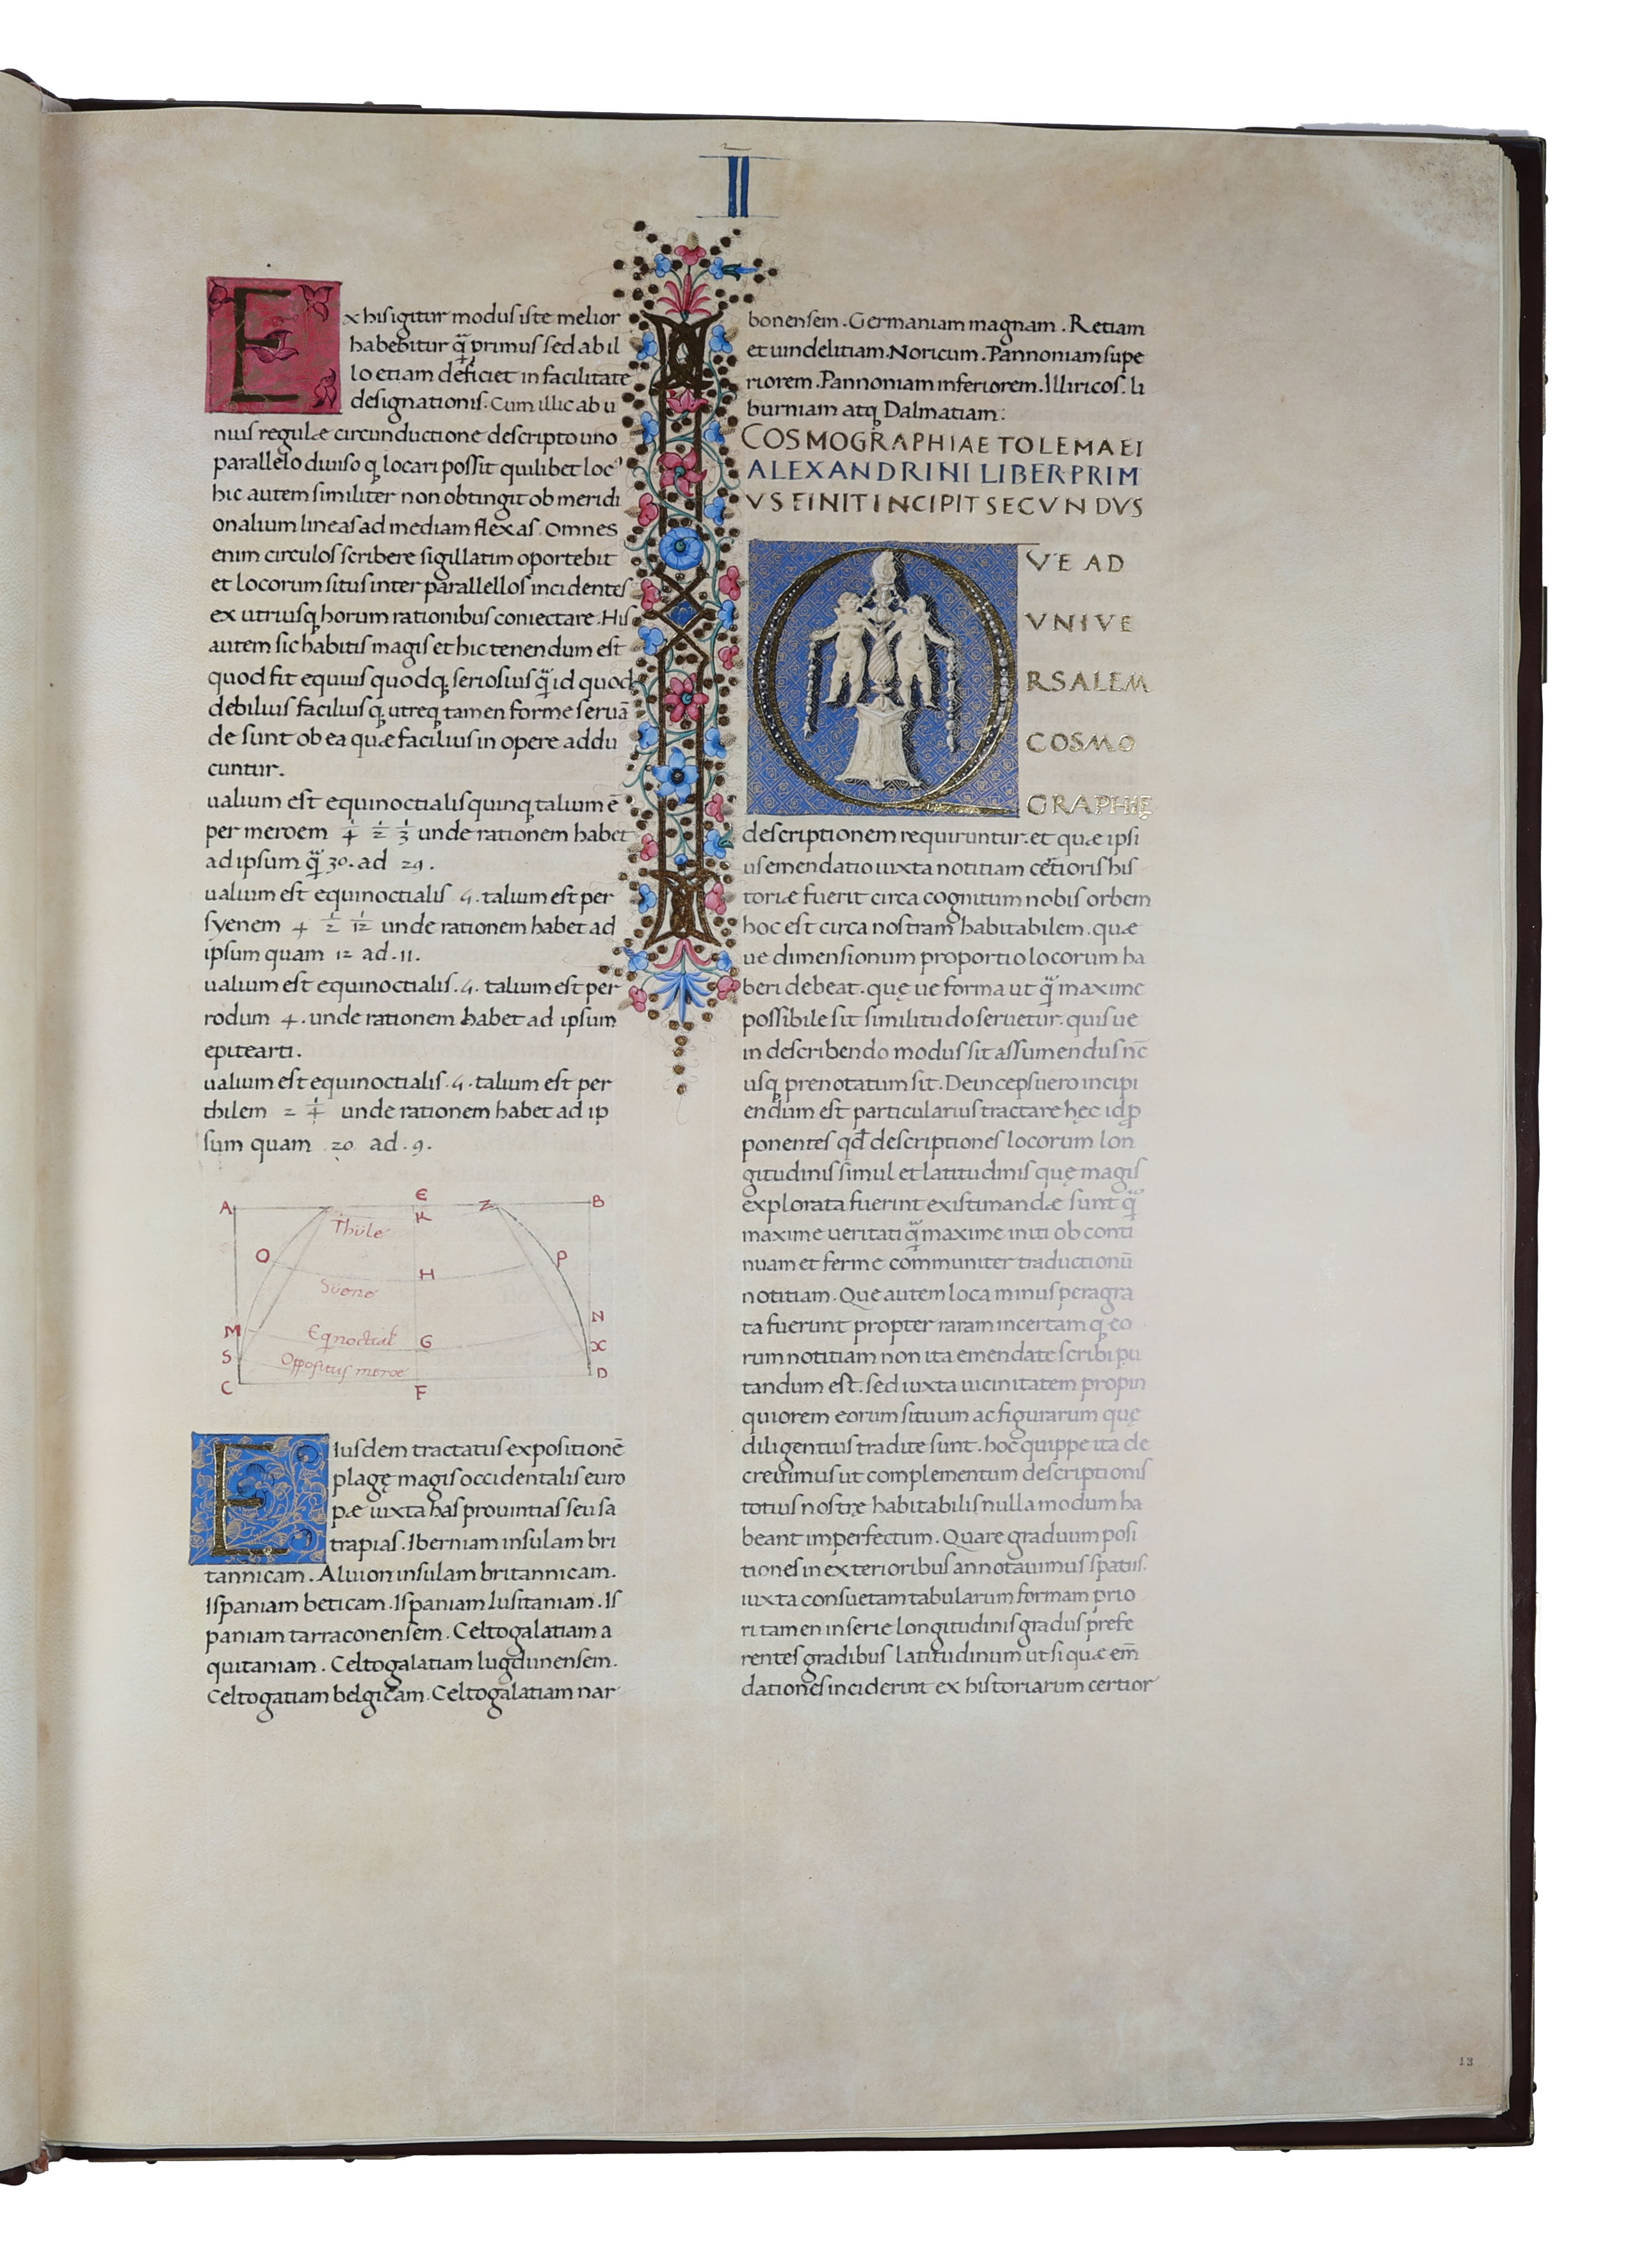 II
Ex hiſ igitur moduſ iſte melior
habebitur q̃ primuſ ſed ab il
lo etiam deficiet in facilitate
deſignationiſ. Cum illic ab u
niuſ regulæ circunductione deſcripto uno
parallelo diuiſo q; locari poſſit quilibet loc9
hic autem ſimiliter non obtingit ob meridi
onalium lineaſ ad mediam flexaſ. Omneſ
enim circuloſ ſcribere ſigillatim oportebit
et locorum ſituſ inter paralleloſ incidenteſ
ex utriuſq; horum rationibuſ coniectare. Hiſ
autem ſic habitiſ magiſ et hic tenendum eſt
quod fit equiuſ quodq; ſerioſiuſ q̃ id quod
debiliuſ faciliuſ q; utreq; tamen forme ſeruã
de ſunt ob ea quæ faciliuſ in opere addu
cuntur.
ualium eſt equinoctialiſ quinq; talium ē
per meroem 4 1/2 1/3 unde rationem habet
ad ipſum q̃ 30. ad 29.
ualium eſt equinoctialiſ 5. talium eſt per
ſyenem 4 1/2 1/12 unde rationem habet ad
ipſum quam 12 ad. 11.
ualium eſt equinoctialiſ. 5. talium eſt per
rodum 4. unde rationem habet ad ipſum
epitearti.
ualium eſt equinoctialiſ. 5. talium eſt per
thilem 2 1/4 unde rationem habet ad ip
ſum quam 20 ad. 9.
A E Z B
K
Thüle
O P
H
Süene
N
M Eqnoctial G
X
S Oppoſituſ meroe
D
C F
EIuſdem tractatuſ expoſitionē
plagę magiſ occidentaliſ euro
pæ iuxta haſ prouintiaſ ſeu ſa
trapiaſ. Iberniam inſulam bri
tannicam. Aluion inſulam britannicam.
Iſpaniam beticam. Iſpaniam luſitaniam. Iſ
paniam tarraconenſem. Celtogalatiam a
quitaniam. Celtogalatiam lugdunenſem.
Celtogatiam belgicam. Celtogalatiam nar
bonenſem. Germaniam magnam. Retiam
et uindelitiam. Noricum. Pannoniam ſupe
riorem. Pannoniam inferiorem. Illiricoſ. li
burniam atq; Dalmatiam:
COSMOGRAPHIAE TOLEMAEI
ALEXANDRINI LIBER PRIM
VS FINIT INCIPIT SECVNDVS
QVE AD
VNIVE
RSALEM
COSMO
GRAPHIĘ
deſcriptionem requiruntur. et quæ ipſi
uſ emendatio iuxta notitiam cẽtioriſ hiſ
toriæ fuerit circa cognitum nobiſ orbem
hoc eſt circa noſtram habitabilem. quæ
ue dimenſionum proportio locorum ha
beri debeat. quę ue forma ut q̃ maxime
poſſibile ſit ſimilitudo ſeruetur. quiſ ue
in deſcribendo moduſ ſit aſſumenduſ nc̄
uſq; prenotatum ſit. Deincepſ uero incipi
endum eſt particulariuſ tractare hęc id ꝓ
ponenteſ qd̄ deſcriptioneſ locorum lon
gitudiniſ ſimul et latitudiniſ quę magiſ
explorata fuerint exiſtimandæ ſunt q̃
maxime ueritati q̃ maxime initi ob conti
nuam et ferme communiter traductionū
notitiam. Que autem loca minuſ peragra
ta fuerunt propter raram incertam q; eo
rum notitiam non ita emendate ſcribi pu
tandum eſt. ſed iuxta uicinitatem propin
quiorem eorum ſituum ac figurarum quę
diligentiuſ tradite ſunt. hoc quippe ita de
creuimuſ ut complementum deſcriptioniſ
totiuſ noſtrę habitabiliſ nulla modum ha
beant imperfectum. Quare graduum poſi
tioneſ in exterioribuſ annotauimuſ ſpatiiſ.
iuxta conſuetam tabularum formam prio
ri tamen in ſerie longitudiniſ graduſ prefe
renteſ gradibuſ latitudinum ut ſi quæ em̄
dationeſ inciderint ex hiſtoriarum certior
13